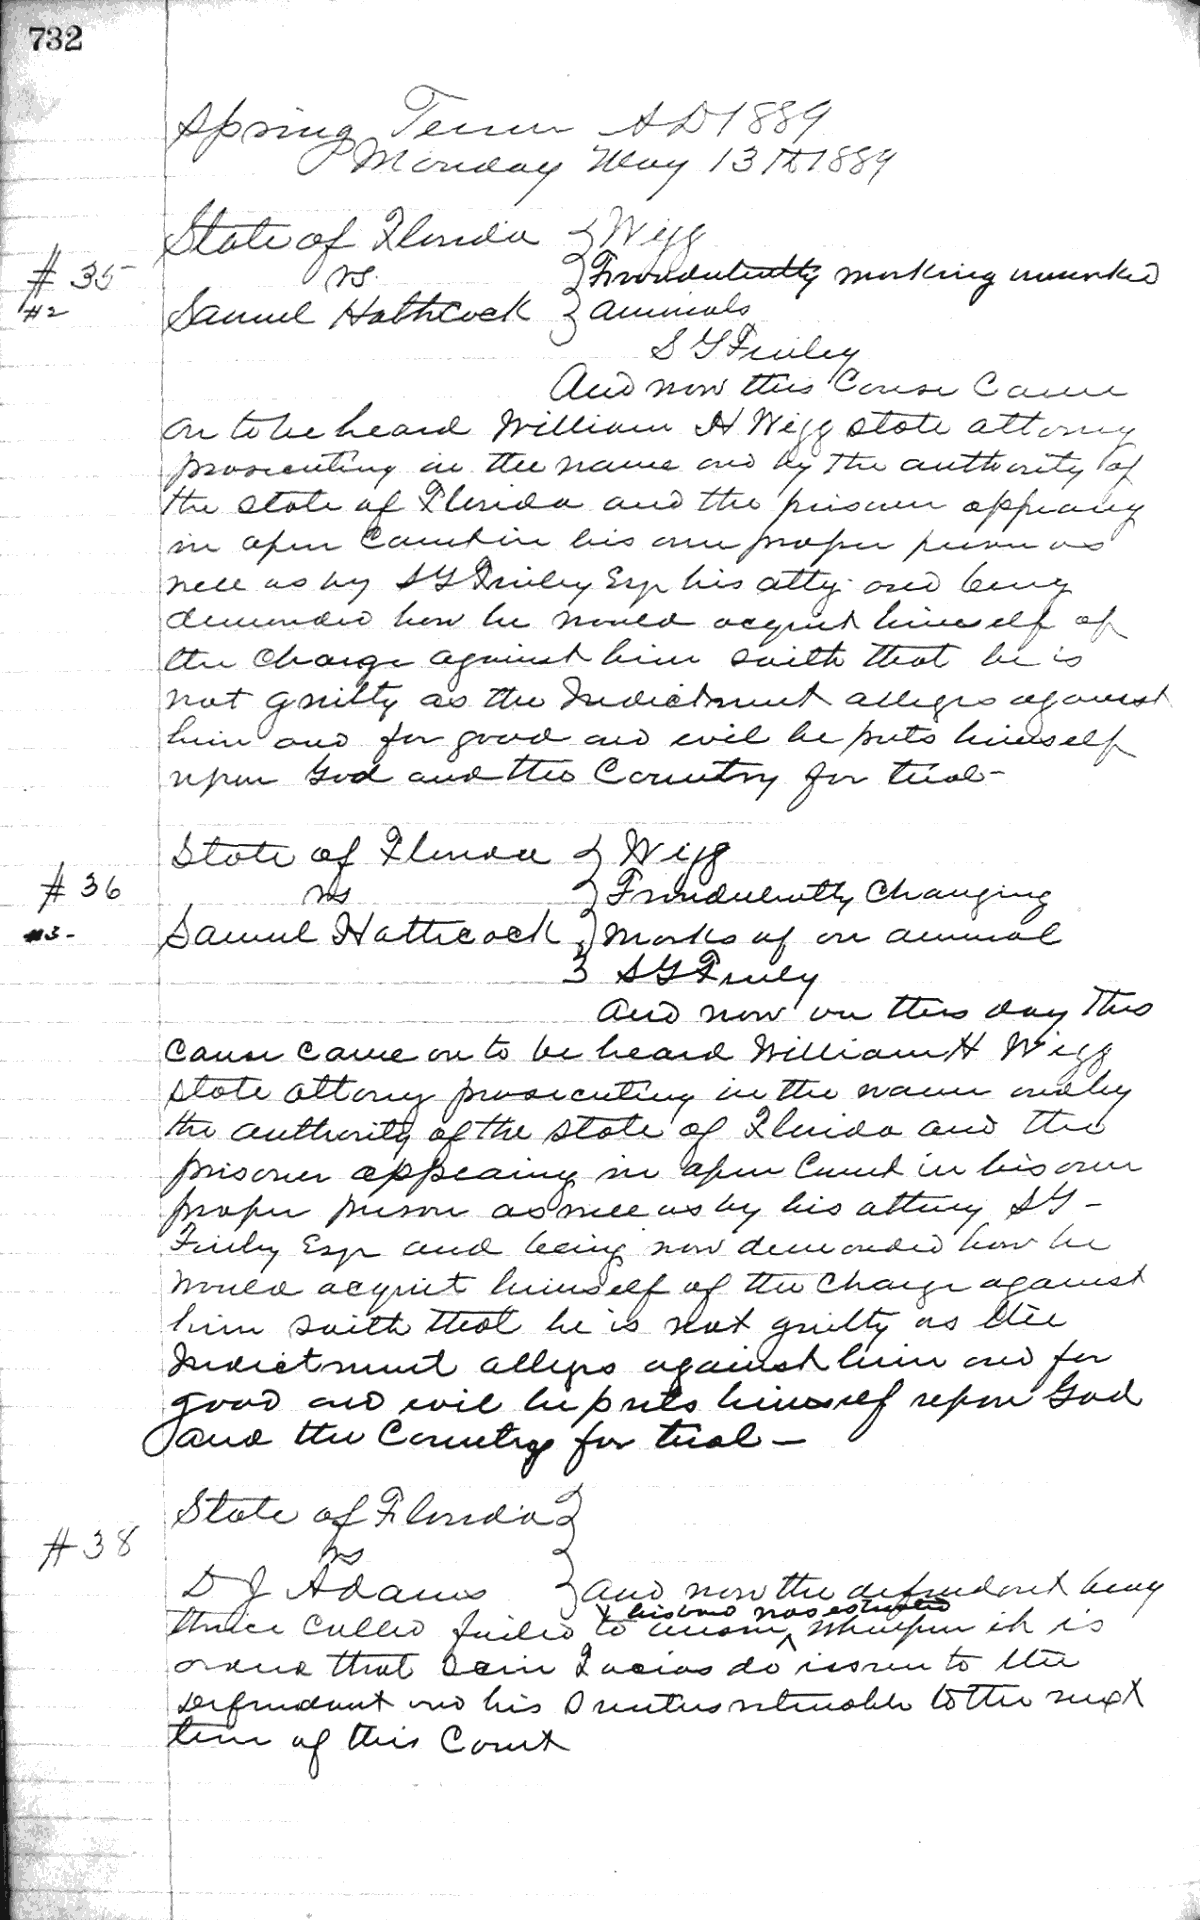 732
Spring Term AD 1889
Monday May 13th 1889
State of Florida } Wigg
# 35 vs } Fraudulently marking unmarked
#2 Samuel Hathcock } animals
S G Finley
And now this Cause Came
on to be heard William H Wigg state attorney
prosecuting in the name and by the authority of
the state of Florida and the prisoner appearing
in open Court in his own proper person as
well as by S G Finley Esqr his atty and being
demanded how he would acquit himself of
the charge against him saith that he is
not guilty as the Indictment alleges against
him and for good and evil he puts himself
upon God and the Country for trial -
State of Florida } Wigg
# 36 vs } Fraudulently Changing
#3- Samuel Hathcock } Marks of an animal
} S G Finley
And now on this day This
Cause came on to be heard William H Wigg
state attorney prosecuting in the name and by
the authority of the state of Florida and the
prisoner appearing in open Court in his own
proper person as well as by his attorney S G -
Finley Esqr and being now demanded how he
would acquit himself of the Charge against
him saith that he is not guilty as the
Indictment alleges against him and for
good and evil he puts himself upon God
and the Country for trial -
State of Florida }
# 38 vs }
D J Adams } And now the defendant being
his bond was estreated
thrice called failed to answer ^ Whereupon it is
ordered that Facias do issue to the
Defendant and his Sureties returnable to the next
term of this Court